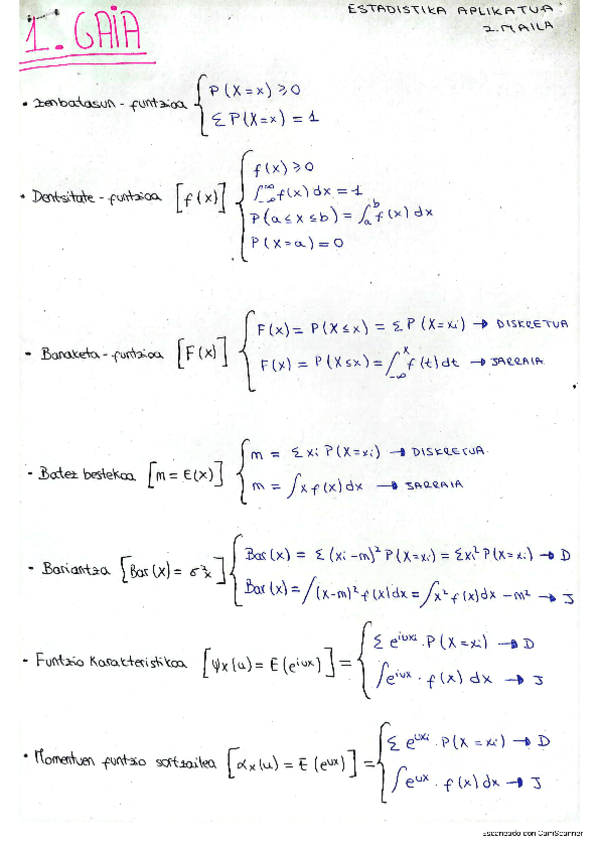 ESTADISTIKA APLIKATUA
2. MAILA
1. GAIA
• Zenbatasun - funtzioa { P(X=x) ≥ 0
Σ P(X=x) = 1
• Dentsitate - funtzioa [f(x)] { f(x) ≥ 0
∫_{-∞}^{∞} f(x) dx = 1
P(a ≤ x ≤ b) = ∫_a^b f(x) dx
P(X=a) = 0
- Banaketa - funtzioa [F(x)] { F(x) = P(X ≤ x) = Σ P(X=xi) → DISKRETUA
F(x) = P(X ≤ x) = ∫_{-∞}^x f(t) dt → JARRAIA
- Batez bestekoa [m = E(x)] { m = Σ xi P(X=xi) → DISKRETUA
m = ∫ x f(x) dx → JARRAIA
- Bariantza [Bar(x) = σ²x] { Bar(x) = Σ (xi - m)² P(X=xi) = Σxi² P(X=xi) → D
Bar(x) = ∫(x-m)² f(x) dx = ∫x² f(x) dx - m² → J
- Funtzio karakteristikoa [ψx(u) = E(e^{iux})] = { Σ e^{iuxi} · P(X=xi) → D
∫ e^{iux} · f(x) dx → J
• Momentuen funtzio sortzailea [αx(u) = E(e^{ux})] = { Σ e^{uxi} · P(X=xi) → D
∫ e^{ux} · f(x) dx → J
Escaneado con CamScanner